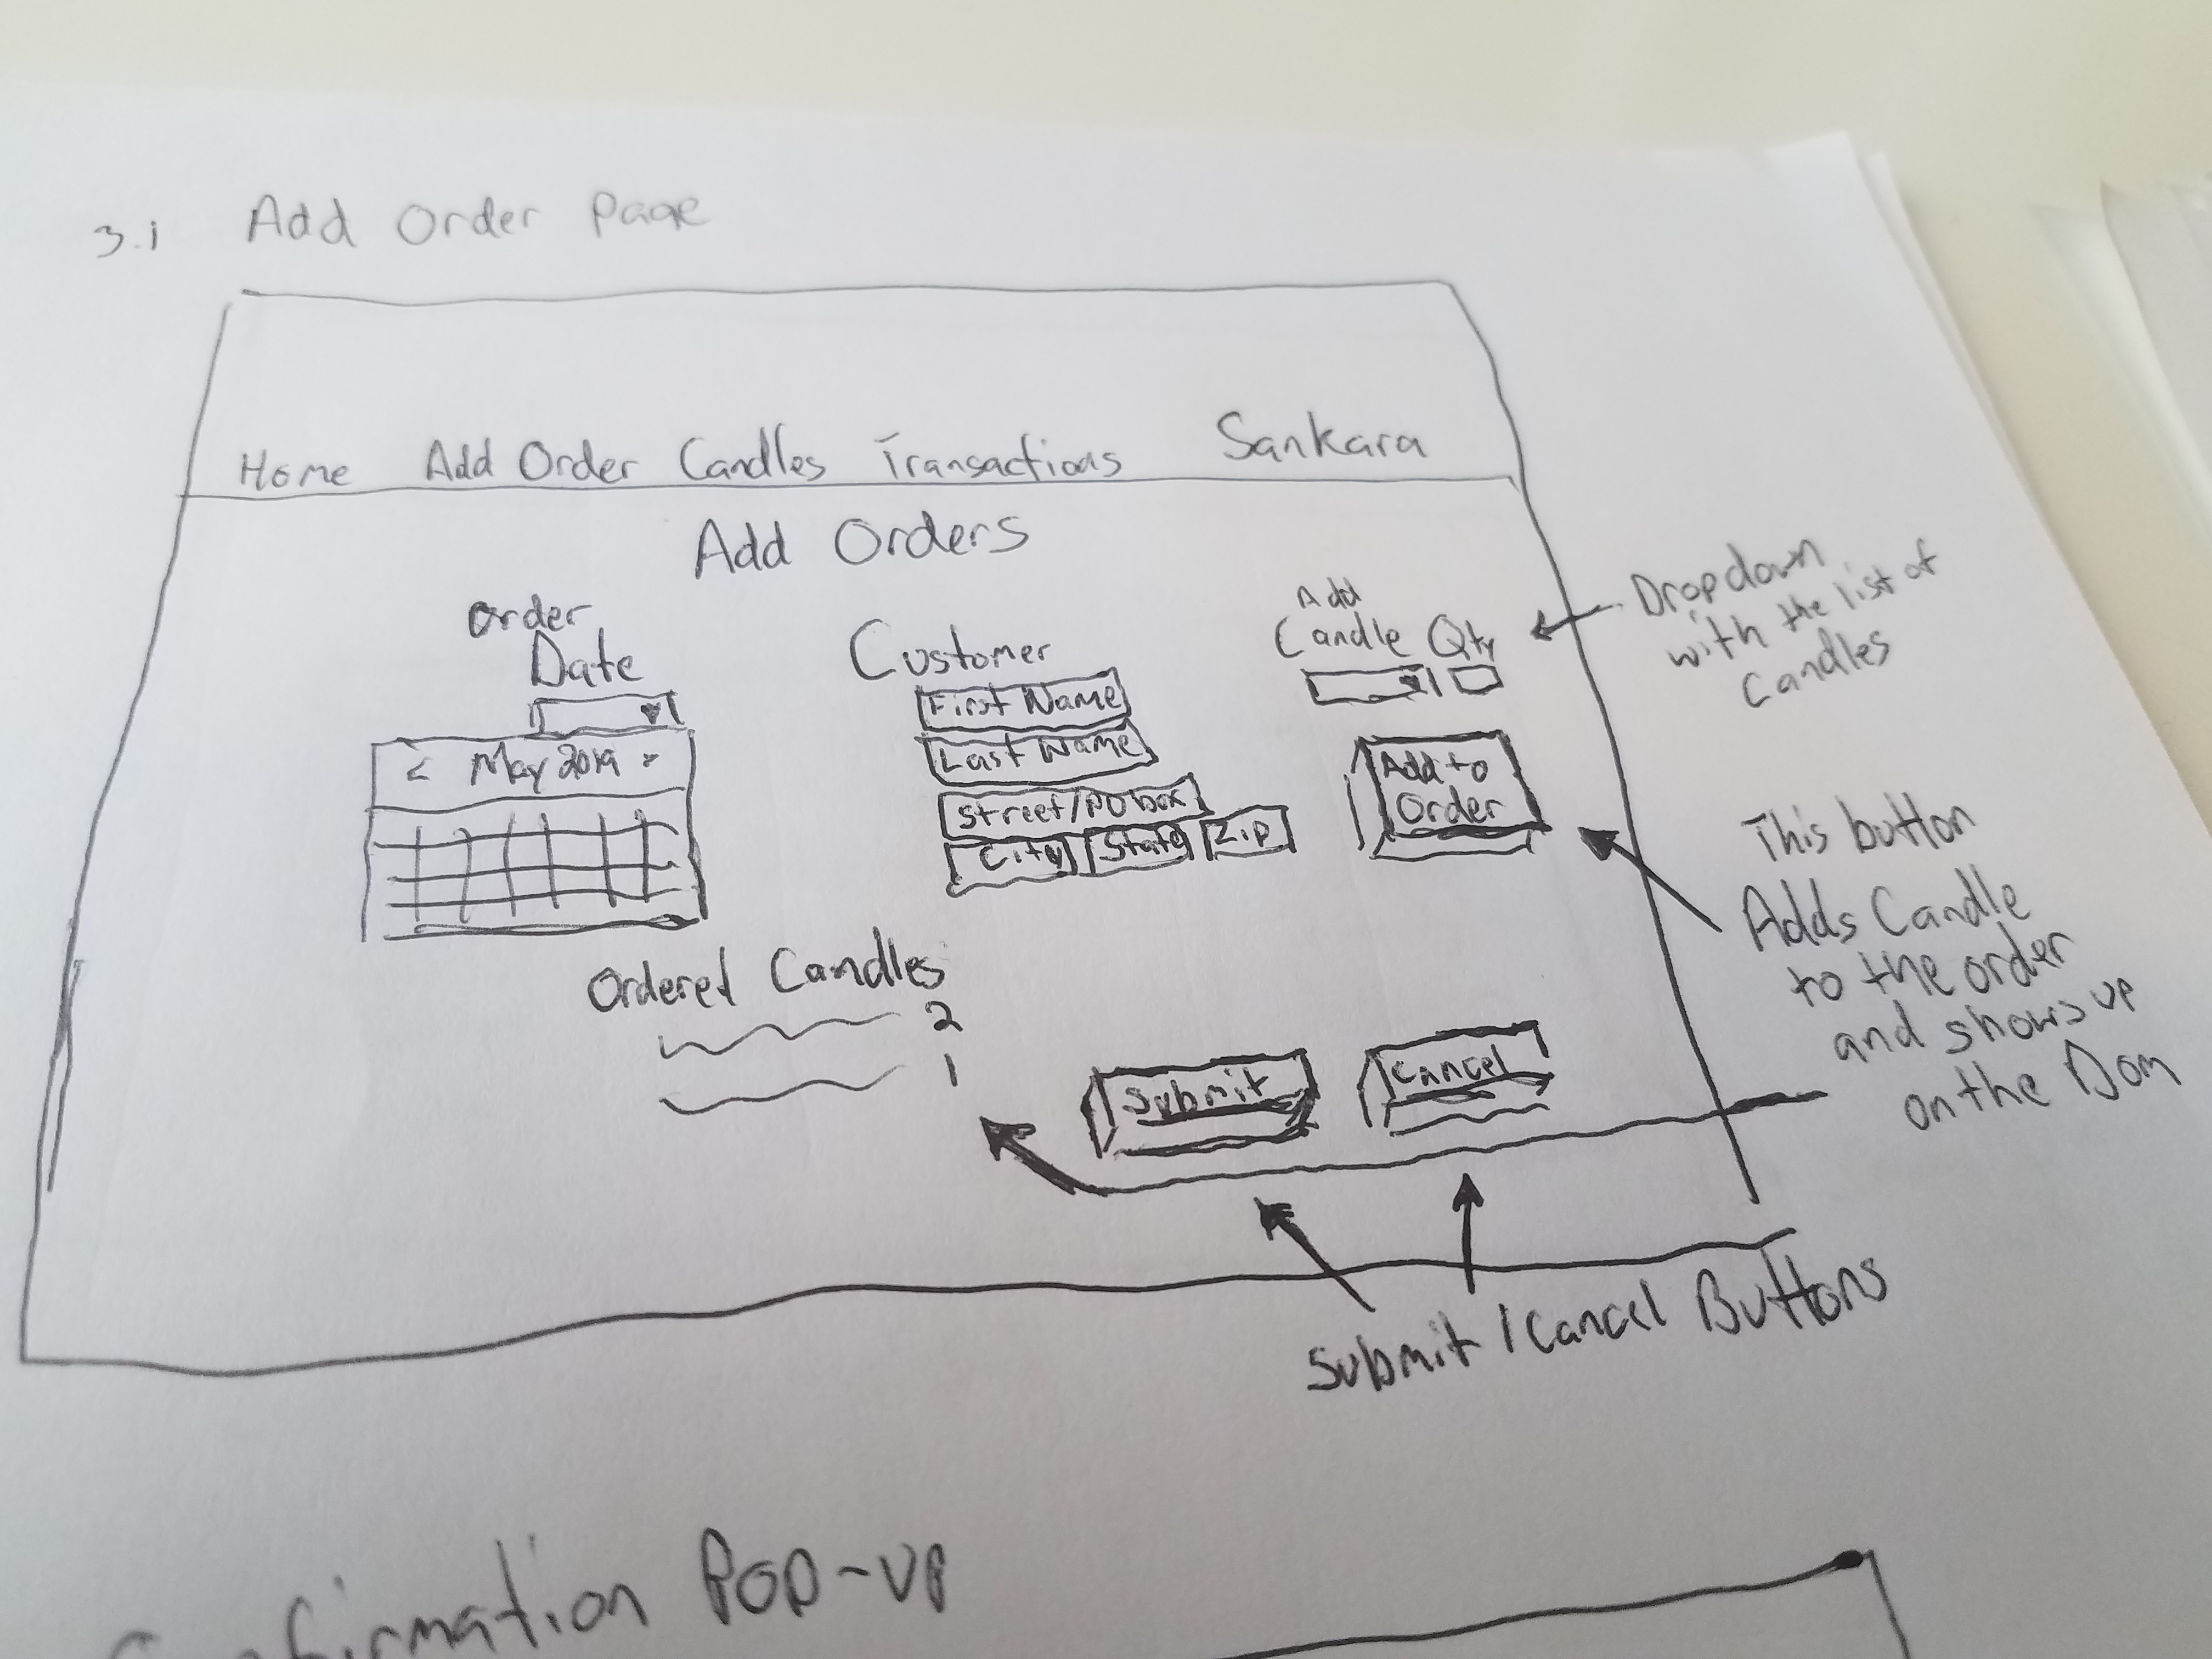 3.1 Add Order Page
Home Add Order Candles Transactions Sankara
Add Orders
Order
Date
< May 2019 >
Customer
First Name
Last Name
Street/PO box
City State Zip
Add
Candle Qty
Add to
Order
Dropdown
with the list of
Candles
This button
Adds Candle
to the order
and shows up
on the Dom
Ordered Candles
2
1
Submit Cancel
Submit / Cancel Buttons
Confirmation Pop-up